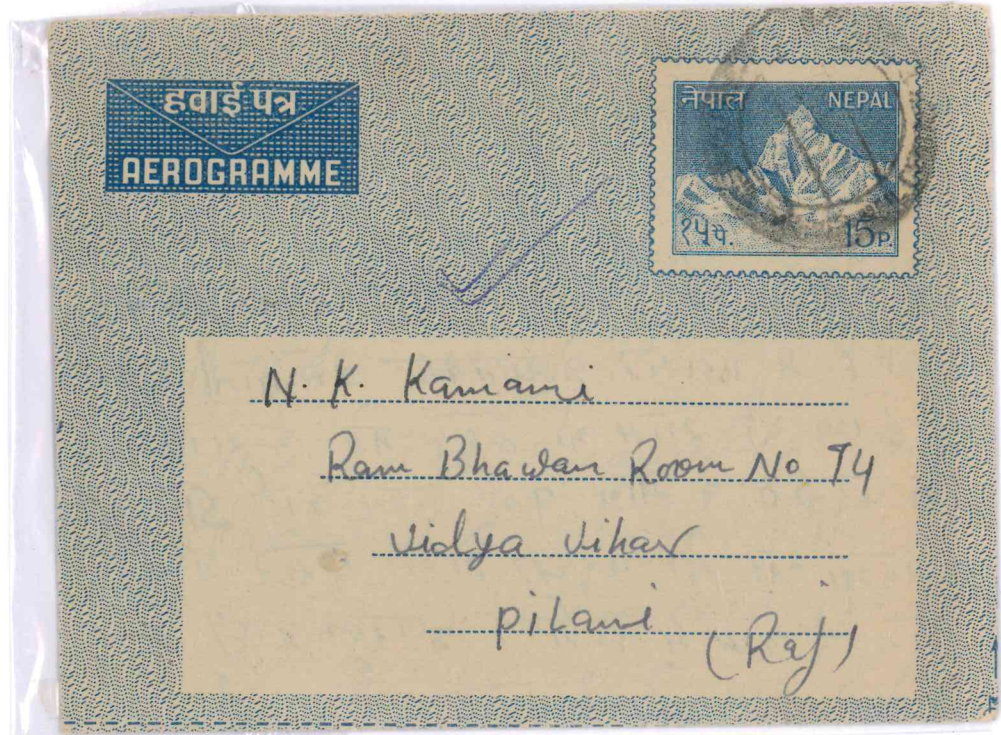 हवाई पत्र
AEROGRAMME
नेपाल NEPAL
१५ पै. 15P.
N. K. Kamani
Ram Bhawan Room No 74
Vidya Vihar
Pilani (Raj)